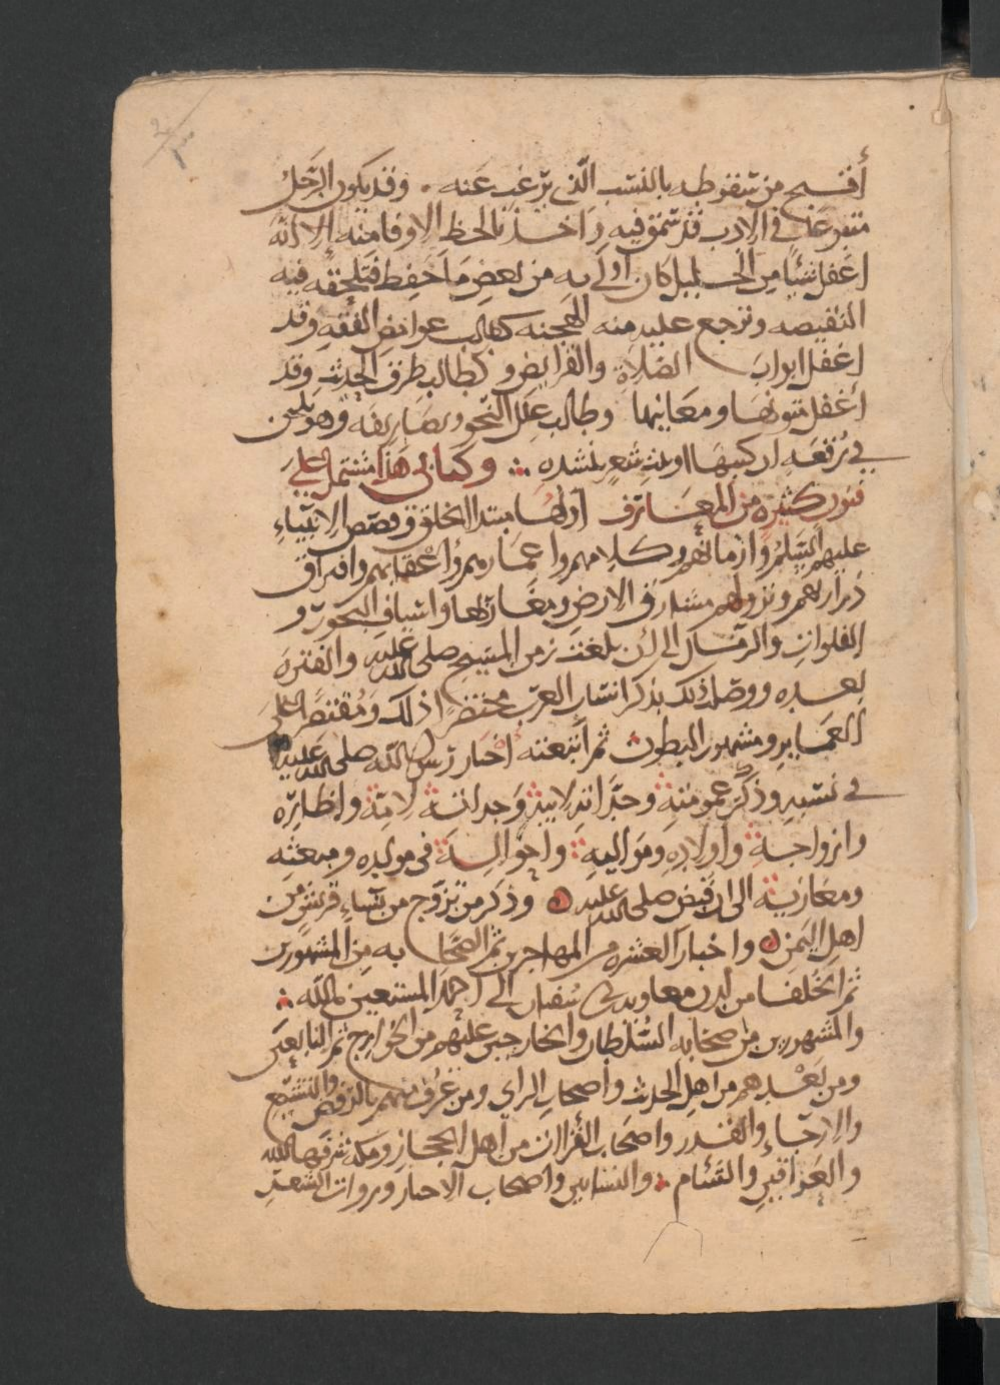 أقبح من سقوطه بالنسب الذي يرغب عنه . وقد يكون الرجل
متبرعا في الادب قد سمق فيه واخذ بالحظ الاوفا منه إلا انه
اغفل شئا من الجليل كان اولى به من بعض ما حفظ فتلحقه فيه
النقيصه وترجع عليه منه الهجنه كطالب غوامض الفقه وقد
اغفل ابواب الصلاة والفرايض و كطالب طرق الحديث وقد
أغفل متونها ومعانيها وطالب علل النحو وتصاريفه وهو يلحن
في رُقعه ان كتبها او بيت شعر ينشده ؞ وكتابي هذا مشتمل على
فنون كثيره من المعارف اولها مبتدا الخلق وقصص الانبياء
عليهم السلم وازمانهم وكلامهم واعمارهم واعقابهم وافتراق
ذراريهم ونزولهم مشارق الارض ومغاربها واسياف البحور و
الفلوات والرمال الى ان بلغت زمن المسيح صلى الله عليه والفترة
بعده ووصلت ذلك بذكر انساب العرب مختصرا ذلك ومقتصرا على
العماير ومشهور البطون ثم أتبعته اخبار رسول الله صلى الله عليه
في نسبه وذكر عمومته وجدّاته لابيه وجداته لامّه واظاره
وازواجه وأولاده ومواليه واحواله في مولده ومبعثه
ومغازيه الى ان قبض صلى الله عليه وذكر من تزوج من نساء قريش من
اهل اليمن واخبار العشره من المهاجرين ثم الصحابه من المشهورين
ثم الخلفا من لدن معاويه بن سفيان الى احمد المستعين بالله ؞
والمشهورين من صحابه السُلطان والخارجين عليهم من الخوارج ثم التابعين
ومن بعدهم من اهل الحديث وأصحاب الراي ومن عُرف منهم بالرفض والتشيع
والارجاء والقدر واصحاب القراات من أهل الحجاز ومكه شرفها الله
والعراقين والشام والنسابين واصحاب الاخبار وروات الشعر